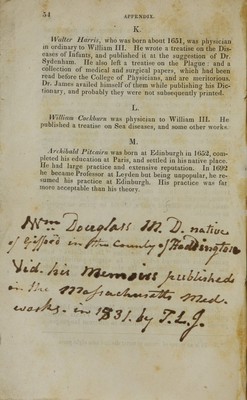 54 APPENDIX.
K.
Walter Harris, who was born about 1651, was physician
in ordinary to William III. He wrote a treatise on the Dis-
eases of Infants, and published it at the suggestion of Dr.
Sydenham. He also left a treatise on the Plague and a
collection of medical and surgical papers, which had been
read before the College of Physicians, and are meritorious.
Dr. James availed himself of them while publishing his Dic-
tionary, and probably they were not subsequently printed.
L.
William Cockburn was physician to William III. He
published a treatise on Sea diseases, and some other works.
M.
Archibald Pitcairn was born at Edinburgh in 1652, com-
pleted his education at Paris, and settled in his native place.
He had large practice and extensive reputation. In 1692
he became Professor at Leyden but being unpopular, he re-
sumed his practice at Edinburgh. His practice was far
more acceptable than his theory.
Wm Douglass M. D. native
of Gifford in the County of Haddington
Vid. his Memoirs published
in the Massachusetts Med.
works. in 1831. by T.L.J.